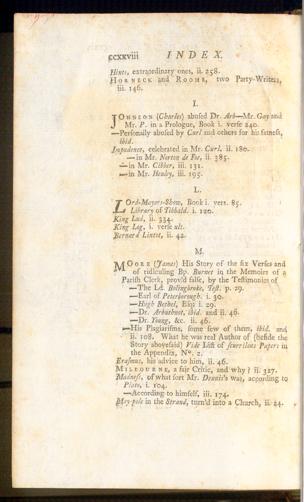 ccxxviii INDEX.
Hints, extraordinary ones, ii. 258.
HORNECK and ROOME, two Party-Writers,
iii. 146.
I.
JOHNSON (Charles) abused Dr. Arb—Mr. Gay and
Mr. P. in a Prologue, Book i. verse 240.
—Personally abused by Curl and others for his fatness,
ibid.
Impudence, celebrated in Mr. Curl, ii. 180.
— in Mr. Norton de Foe, ii. 385.
— in Mr. Cibber, iii. 131.
— in Mr. Henley, iii. 195.
L.
Lord-Mayors-Show, Book i. vers. 85.
Library of Tibbald. i. 120.
King Lud, ii. 334.
King Log, i. verse ult.
Bernard Lintot, ii. 42.
M.
MOORE (James) His Story of the six Verses and
of ridiculing Bp. Burnet in the Memoirs of a
Parish Clerk, prov'd false, by the Testimonies of
— The Ld. Bolingbroke, Test. p. 29.
— Earl of Peterborough. i. 30.
— Hugh Bethel, Esq; 29.
— Dr. Arbuthnot, ibid. and ii. 46.
— Dr. Young, &c. ii. 46.
—His Plagiarisms, some few of them, ibid. and
ii. 108. What he was real Author of (beside the
Story abovesaid) Vide List of scurrilous Papers in
the Appendix, N°. 2.
Erasmus, his advice to him, ii. 46.
MILBOURNE, a fair Critic, and why? ii. 327.
Madness, of what sort Mr. Dennis's was, according to
Plato, i. 104.
—According to himself, iii. 174.
May-pole in the Strand, turn'd into a Church, ii. 24.